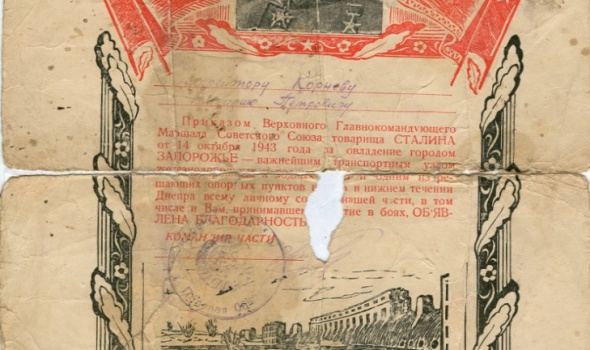 Корневу
Петровичу
Приказом Верховного Главнокомандующего
Маршала Советского Союза товарища СТАЛИНА
от 14 октября 1943 года за овладение городом
ЗАПОРОЖЬЕ — важнейшим транспортным узлом
и одним из ре-
шающих опорных пунктов в нижнем течении
Днепра всему личному нашей части, в том
числе и Вам, в боях, ОБ'ЯВ-
ЛЕНА БЛАГОДАРНОСТЬ
КОМАНДИР ЧАСТИ